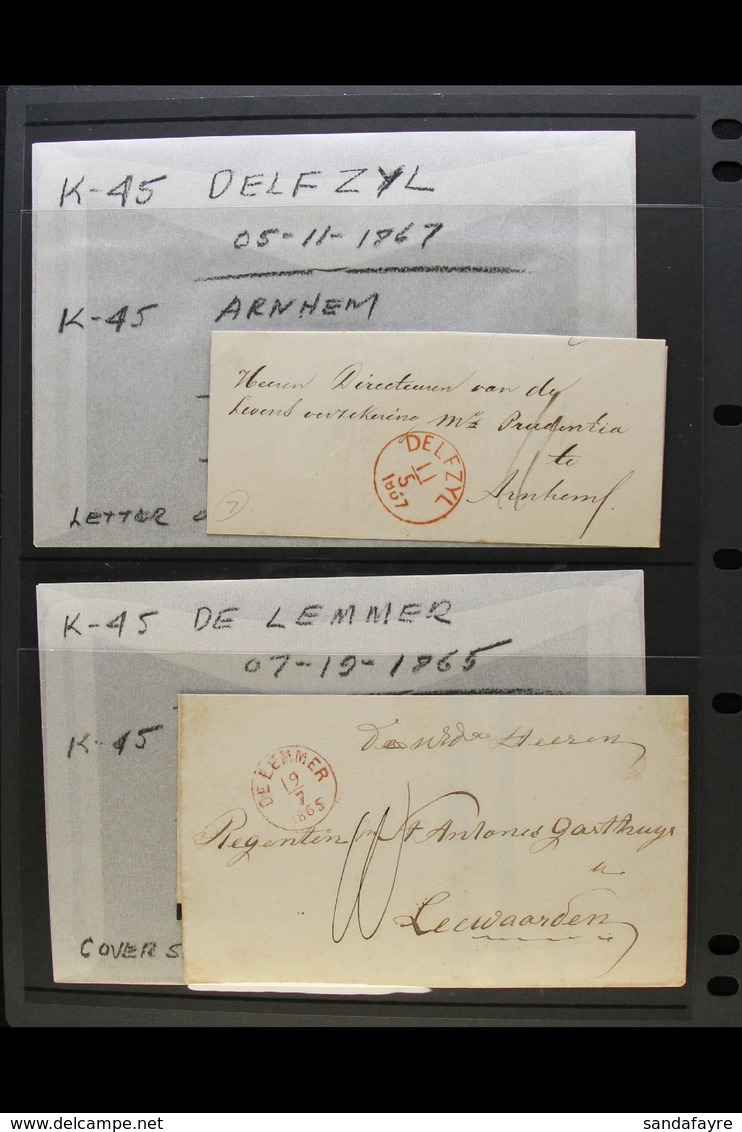 K-45 DELFZYL
05-11-1867
K-45 ARNHEM
Heeren Directeuren van de
Levens verzekering Mij Prudentia
te
Arnhem
DELFZYL
5
11
1867
7
LETTER
K-45 DE LEMMER
07-19-1865
K-45
De Heeren
DE LEMMER
19
7
1865
Regenten St Antonis Gasthuys
Leewaarden
COVER S
delcampe.net
sandafayre